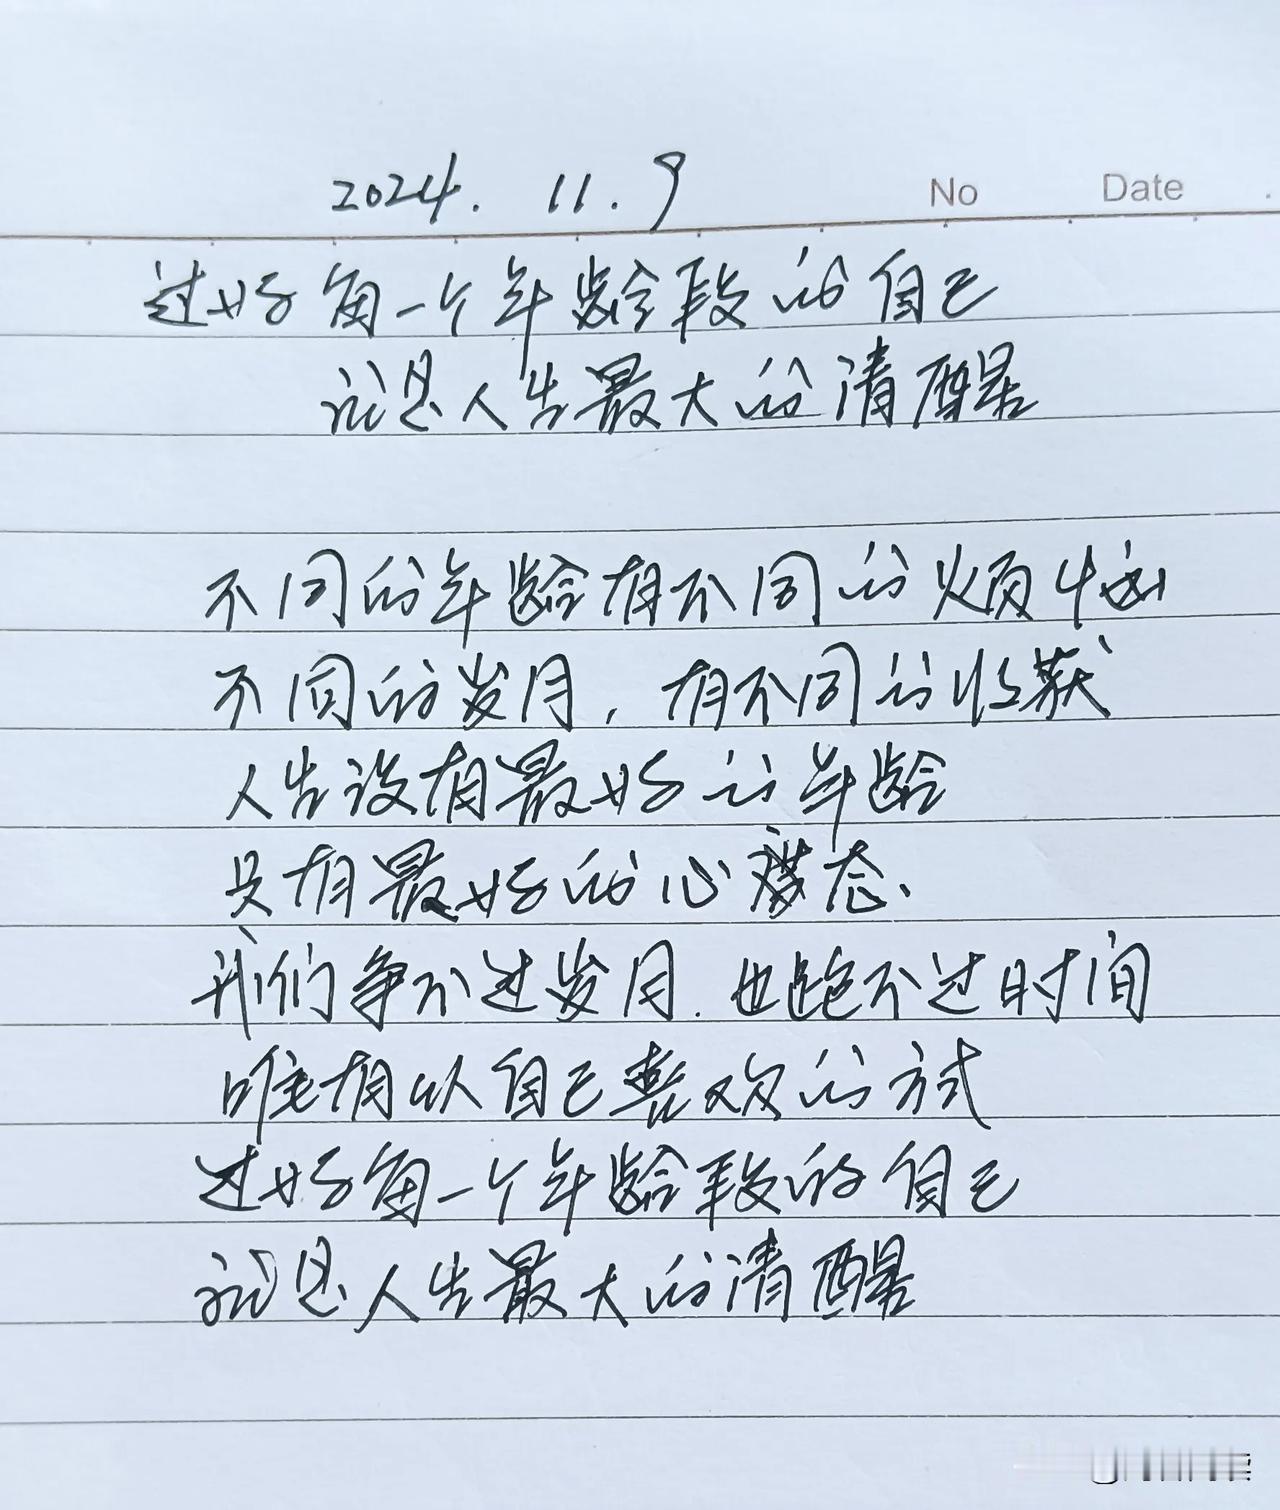 2024. 11. 9
No Date
过好每一个年龄段的自己
就是人生最大的清醒
不同的年龄有不同的烦恼
不同的岁月，有不同的收获
人生没有最好的年龄
只有最好的心态、
我们争不过岁月.也跑不过时间
唯有以自己喜欢的方式
过好每一个年龄段的自己
就是人生最大的清醒